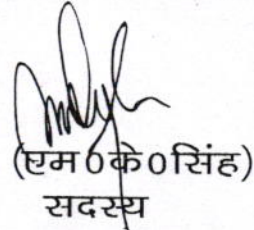 (एम0के0सिंह)
सदस्य